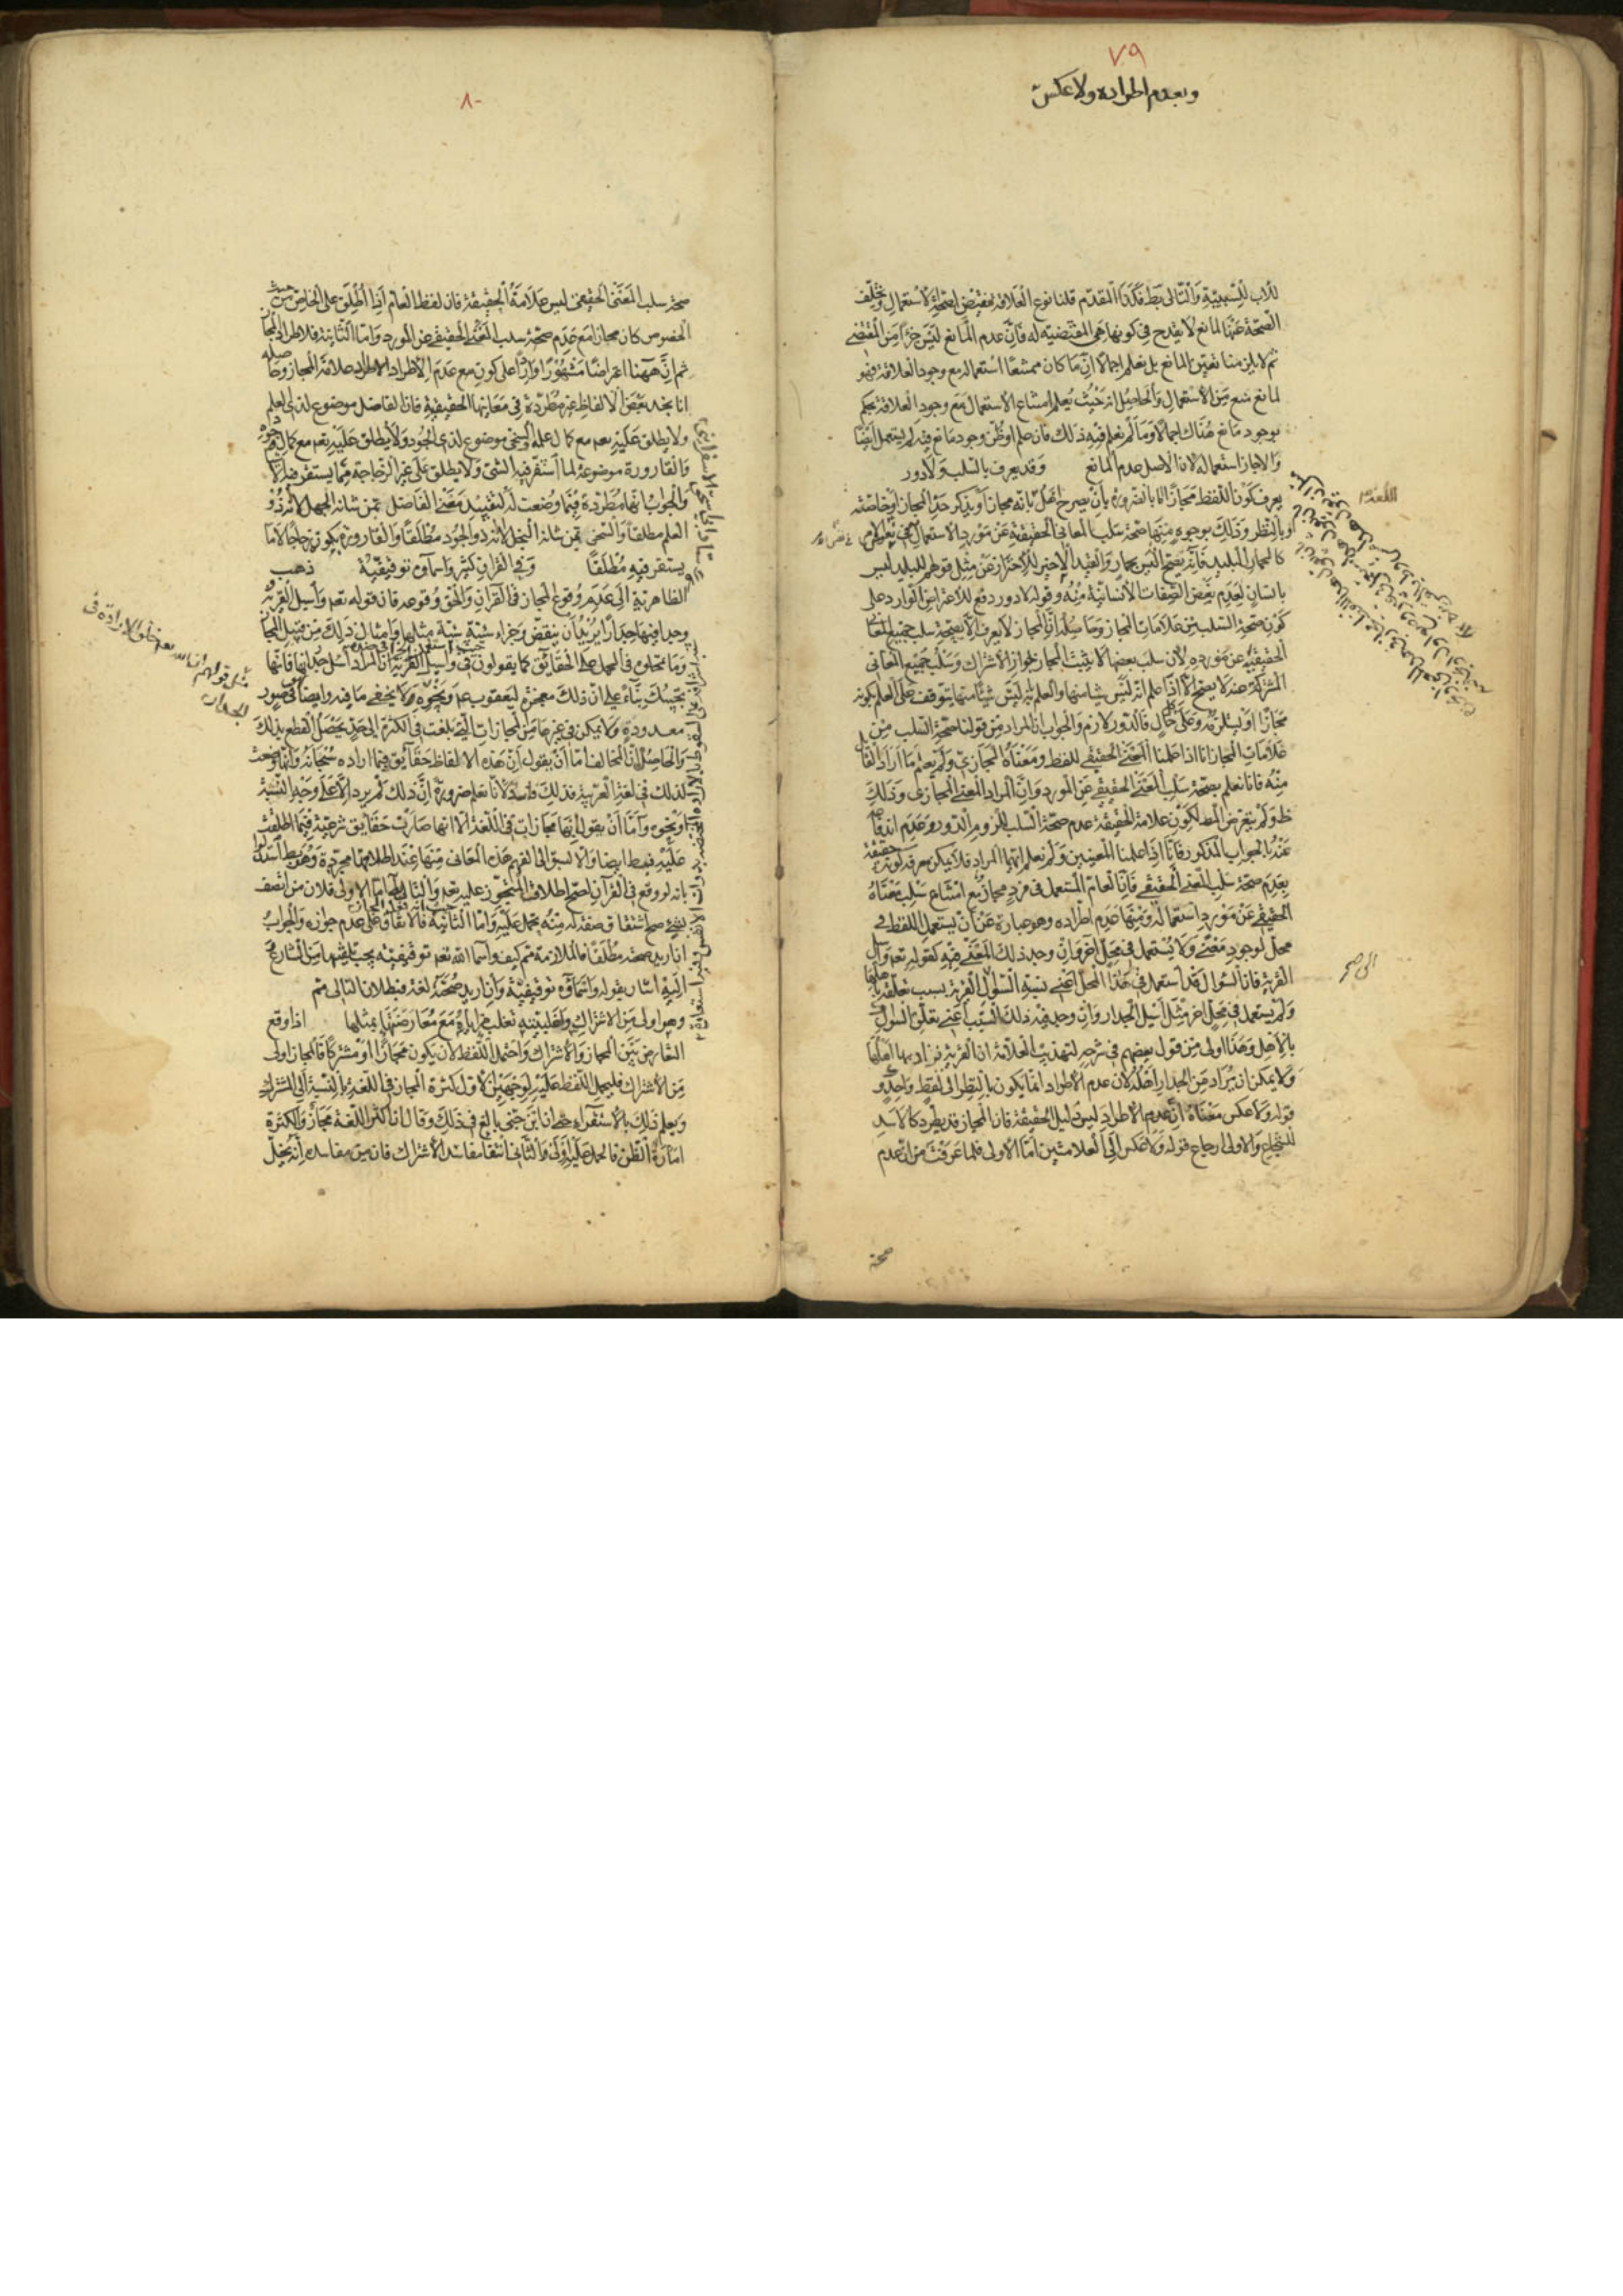 ٧٩
وبعدم اطراده ولا عكس
للأب للسببية والتالى بط فكذا المقدم قلنا نوع العلاقة مقتض لصحة الاستعمال وتخلف
الصحة عنها لمانع لا يقدح فى كونها هى المقتضية له فان عدم المانع ليس جزءا من المقتضى
ثم لا يلزمنا تعيين المانع بل نعلم اجمالا ان ما كان ممتنعا استعماله مع وجود العلاقة فهو
لمانع منع من الاستعمال والحاصل انه حيث يعلم امتناع الاستعمال مع وجود العلاقة يحكم
بوجود مانع هناك اجمالا وما لم نعلم فيه ذلك فان علم او ظن وجود مانع فيه لم يستعمل ايضا
والا جاز استعماله لان الاصل عدم المانع وقد يعرف بالسلب ولا دور
يعرف كون اللفظ مجازا اما بالضرورة بأن يصرح اهل اللغة بانه مجاز او بذكر حد المجاز او خاصته
او بالنظر وذلك بوجوه منها صحة سلب المعانى الحقيقية عن مورد الاستعمال فى نفس الامر
كالحمار للبليد فانه يصح ليس بحمار والقيد الاخير للاحتراز عن مثل قولهم للبليد ليس
بانسان لعدم بعض الصفات الانسانية منه وقوله لا دور دفع للاعتراض الوارد على
كون صحة السلب من علامات المجاز وحاصله ان المجاز لا يعرف الا بصحة سلب جميع المعانى
الحقيقية عن مورده لان سلب بعضها لا يثبت المجاز لجواز الاشتراك وسلب جميع المعانى
المشتركة عنه لا يصح الا اذا علم انه ليس شيئا منها والعلم بانه ليس شيئا منها يتوقف على العلم بكونه
مجازا او يستلزمه وعلى كل حال فالدور لازم والجواب ان المراد من قولنا صحة السلب من
علامات المجاز انا اذا علمنا المعنى الحقيقى للفظ ومعناه المجازى ولم نعلم ما اراد القائل
منه فانا نعلم بصحة سلب المعنى الحقيقى عن المورد وان المراد المعنى المجازى وذلك
ظ ولم يتعرض المص لكون علامة الحقيقة عدم صحة السلب للزوم الدور وعدم اندفاعه
عنه بالجواب المذكور فانا اذا علمنا المعنيين ولم نعلم ايهما المراد فلا يمكن معرفة كونه حقيقة
بعدم صحة سلب المعنى الحقيقى فان العام المستعمل فى فرد مجاز مع امتناع سلب معناه
الحقيقى عن مورد استعماله ومنها عدم اطراده وهو عبارة عن ان يستعمل اللفظ فى
محل لوجود معنى ولا يستعمل فى محل آخر وان وجد ذلك المعنى فيه كقوله تعم واسأل
القرية فان السؤال قد استعمل فى هذا المحل اعنى نسبة السؤال الى القرية بسبب تعلقه باهلها
ولم يستعمل فى محل آخر مثل اسئل الجدار وان وجد فيه ذلك السبب اعنى تعلق السؤال
بالاهل وهذا اولى من قول بعضهم فى شرحه لتهذيب العلامة ان القرية يراد بها اهلها
ولا يمكن ان يراد من الجدار اهله لان عدم الاطراد انما يكون بالنظر الى لفظ واحد و
قوله ولا عكس معناه ان عدم الاطراد ليس دليل الحقيقة فان المجاز قد يطرد كالاسد
للشجاع والاولى ارجاع قوله ولا عكس الى العلامتين اما الاولى فلما عرفت من ان عدم
صحة
اللغة
الى صح
٨٠
صحة سلب المعنى الحقيقى ليس علامة الحقيقة فان لفظ العام اذا اطلق على الخاص من حيث
الخصوص كان مجازا مع عدم صحة سلب المعنى الحقيقى عن المورد واما الثانية فلاطراد المجاز
ثم ان ههنا اعتراضا مشهورا واردا على كون مع عدم الاطراد علامة المجاز وحاصله
انا نجد بعض الالفاظ غير مطردة فى معانيها الحقيقية فان الفاضل موضوع لذى العلم
ولا يطلق عليه تعم مع كمال علمه والسخى موضوع لذى الجود ولا يطلق عليه تعم مع كمال جوده
والقارورة موضوعة لما استقر فيه الشئ ولا يطلق على غير الزجاجة مما يستقر فيه الماء
والجواب انها مطردة فيما وضعت له لتقييد معنى الفاضل بمن شانه الجهل لا ذو
العلم مطلقا والسخى بمن شانه البخل لا ذو الجود مطلقا والقارورة بكونها زجاجا لا ما
يستقر فيه مطلقا وفى القران كثير واسماؤه توقيفية ذهب
الظاهرية الى عدم وقوع المجاز فى القرآن والحق وقوعه فان قوله تعم واسأل القرية
وجدا فيها جدارا يريد ان ينقض وجزاء سيئة سيئة مثلها وامثال ذلك من قبيل المجاز
وما تمحلوه فى الحمل على الحقائق كما يقولون فى واسأل القرية ان المراد اسئل جدرانها فانها
تجيبك بناء على ان ذلك معجزة ليعقوب عم ونحوه ولا يخفى ما فيه وايضا فى صور
معدودة ولا يمكن فى غيرها من المجازات التى بلغت فى الكثرة الى حد يحصل القطع بذلك
والحاصل ان المخالف اما ان يقول ان هذه الالفاظ حقائق فيما اراده سبحانه وانها وضعت
لذلك فى لغة العربية فذلك فاسد لانا نعلم ضرورة ان ذلك لم يرد الا على وجه التشبيه
او نحوه واما ان يقول انها مجازات فى اللغة الا انها صارت حقايق شرعية فيما اطلقت
عليه فبط ايضا والا لسبق الى الفهم هذه المعانى منها عند اطلاقها مجردة وهو بط استدلوا
بانه لو وقع فى القرآن لصح اطلاق المتجوز عليه تعم والتالى بط اما الاولى فلان من اتصف
بشئ صح اشتقاق صفة له منه تحمل عليه واما الثانية فالاتفاق على عدم جوازه والجواب
ان اريد صحته مطلقا فالملازمة مم كيف واسما الله تعم توقيفية يجب تلقيها من الشارع
اليه اشار بقوله واسماؤه توقيفية وان اريد صحته لغة فبطلان التالى مم
وهو اولى من الاشتراك ولغلبيته تغلب مع معارضتها بمثلها اذا وقع
التعارض بين المجاز والاشتراك واحتمل اللفظ لان يكون مجازا او مشتركا فالمجاز اولى
من الاشتراك فليحمل اللفظ عليه لوجهين الاول كثرة المجاز فى اللغة بالنسبة الى المشترك
ويعلم ذلك بالاستقراء حتى ان ابن جنى بالغ فى ذلك وقال ان اكثر اللغة مجاز والكثرة
امارة الظن فالحمل عليه اولى والثانى انتفا مفاسد الاشتراك فان من مفاسده انه يخل